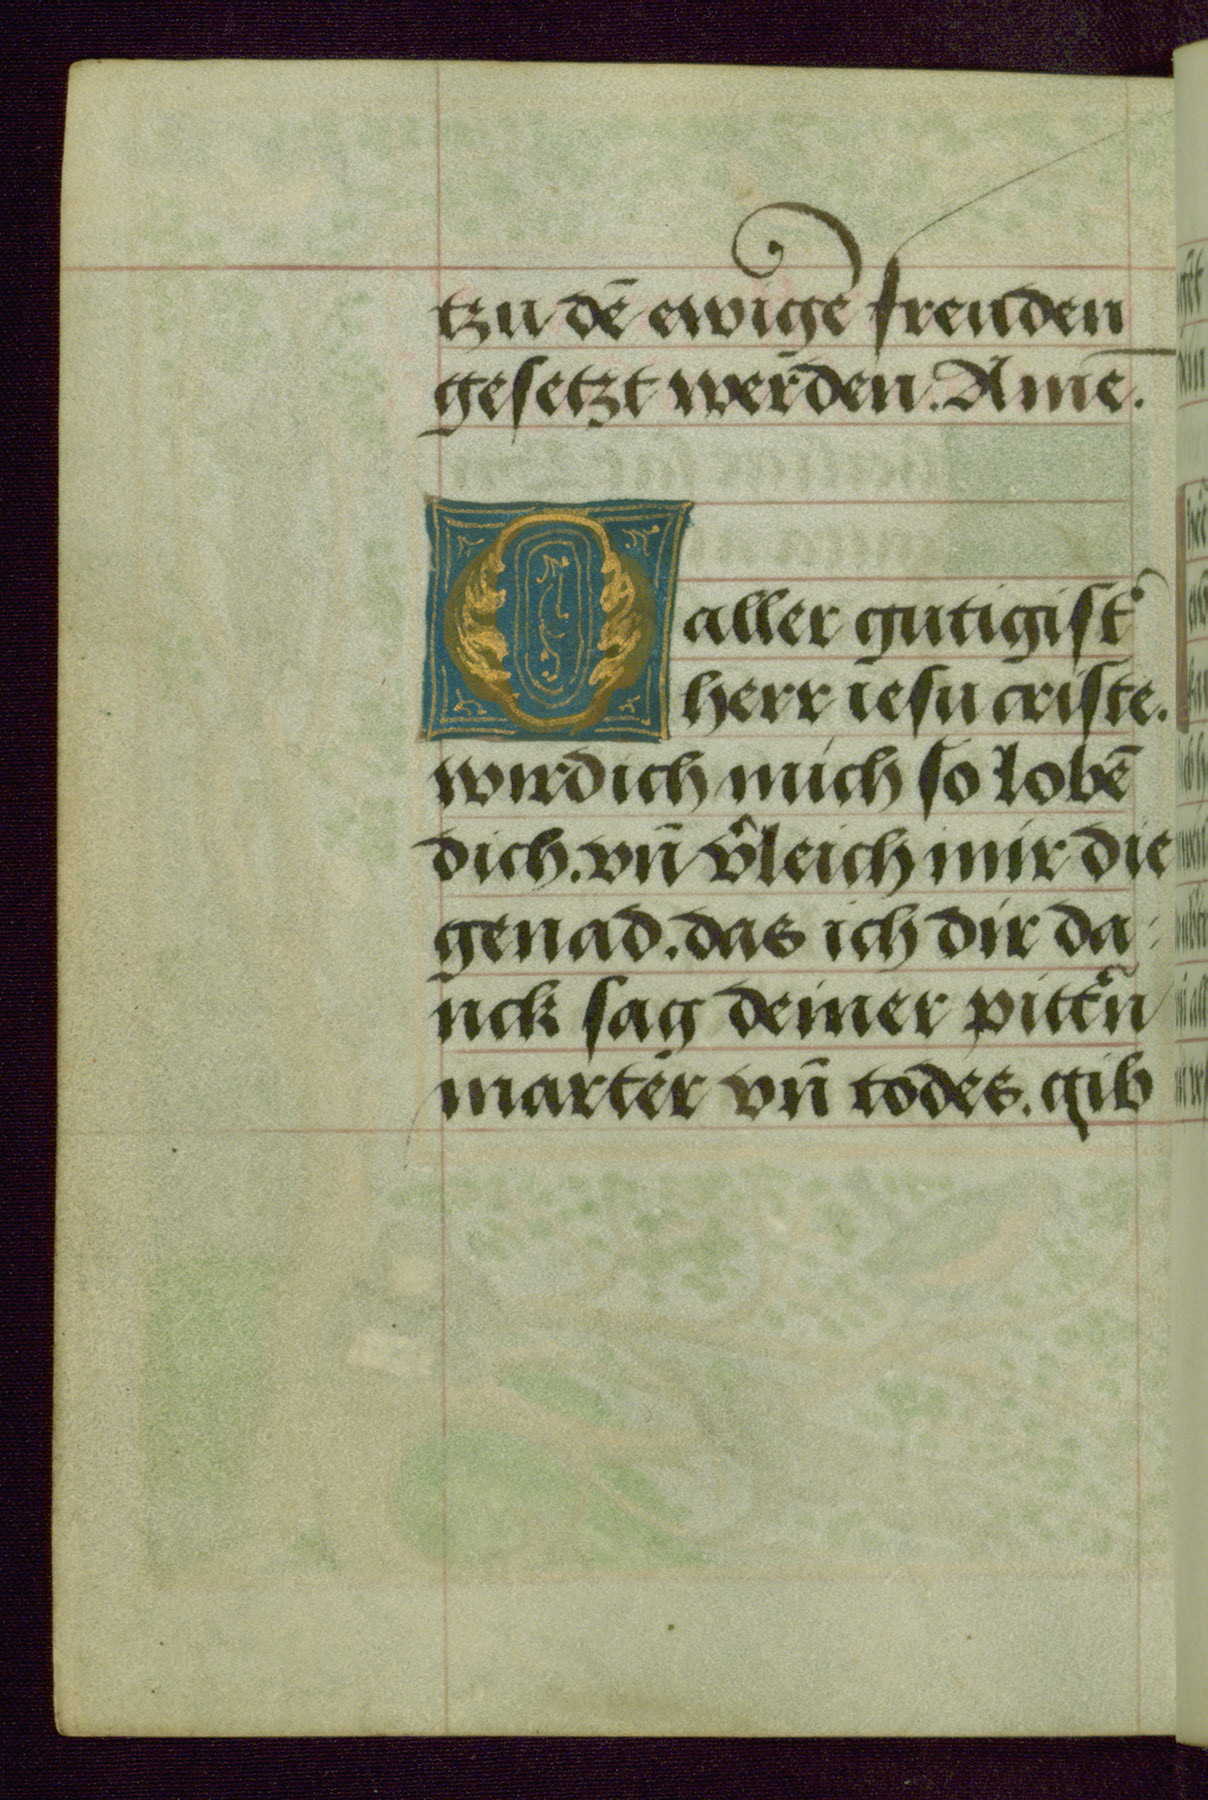 tzu dē ewigē freuden
gesetzt werden. Amē.
O aller gutigist'
herr iesu criste.
wirdich mich so lobē
dich. vn̄ v'leich mir die
genad. das ich dir da=
nck sag deiner pitt'n
marter vn̄ todes. gib